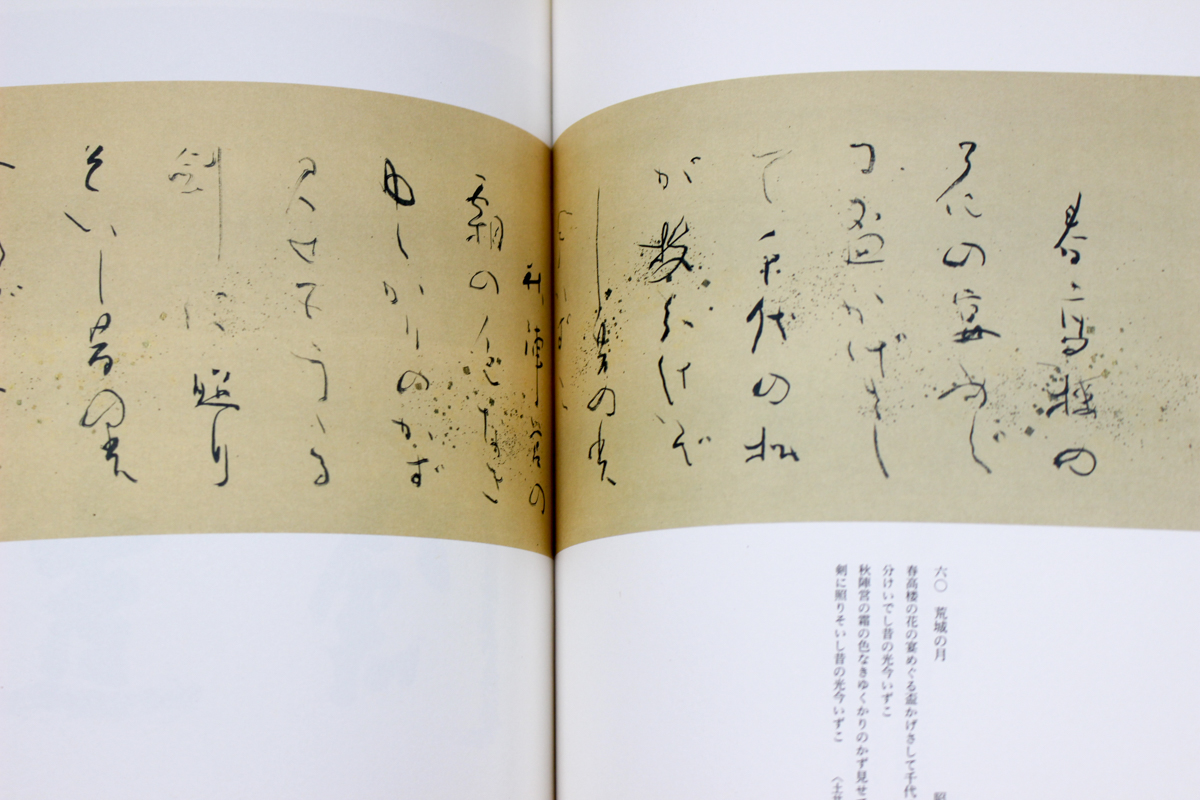 春高楼の
花の宴めぐ
る盃かげさし
て千代の松
が枝分けいで
し昔の光
秋陣営の
霜の色なき
ゆくかりのかず
見せてうゝる
剣に照り
そいし昔の光
六〇 荒城の月
春高楼の花の宴めぐる盃かげさして千代
分けいでし昔の光今いずこ
秋陣営の霜の色なきゆくかりのかず見せ
剣に照りそいし昔の光今いずこ